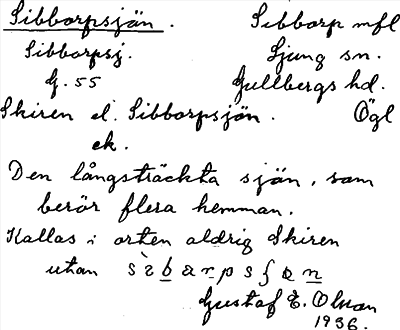 Sibborpsjön. Sibborp mfl
Sibborpsj. Ljung sn.
G. 55 Gullbergs hd.
Skiren el. Sibborpsjön. Ögl
ek.
Den långsträckta sjön, som
berör flera hemman.
Kallas i orten aldrig Skiren
utan
Gustaf E. Olsson
1936.